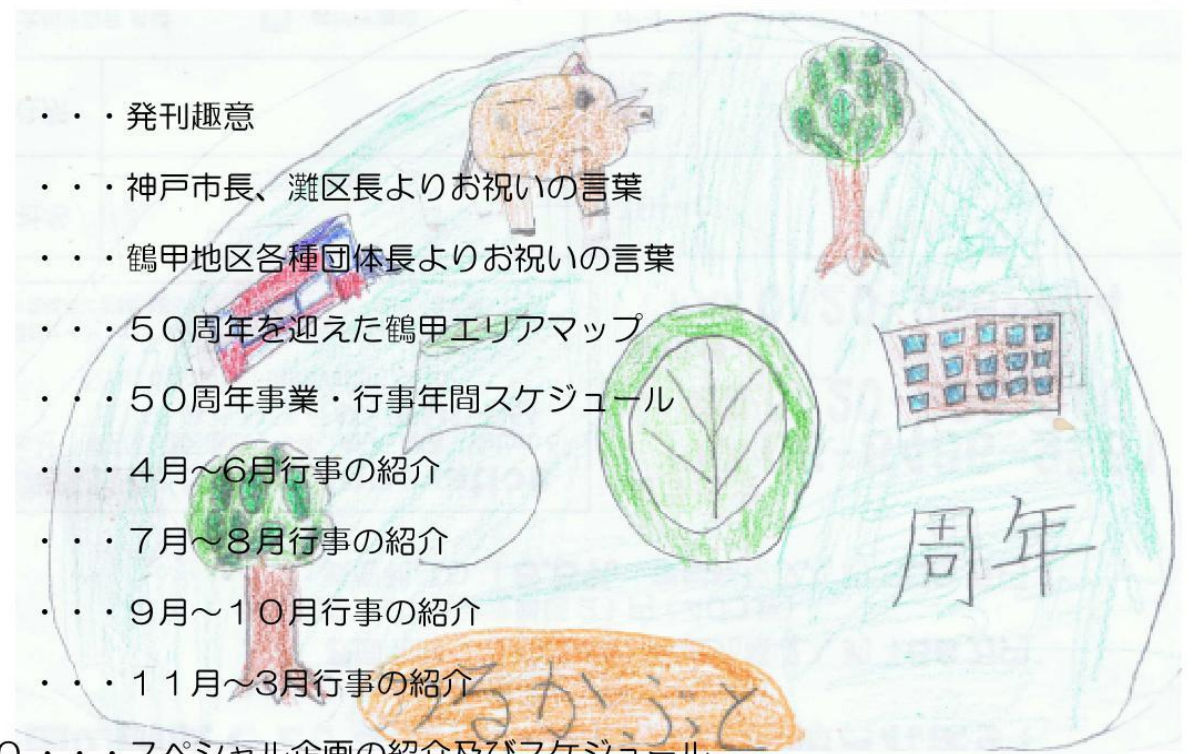 ・・・発刊趣意
・・・神戸市長、灘区長よりお祝いの言葉
・・・鶴甲地区各種団体長よりお祝いの言葉
・・・５０周年を迎えた鶴甲エリアマップ
・・・５０周年事業・行事年間スケジュール
・・・4月～6月行事の紹介
・・・７月～８月行事の紹介
・・・９月～１０月行事の紹介
・・・１１月～3月行事の紹介
０・・・スペシャル企画の紹介及びスケジュール
50
周年
るかぶと